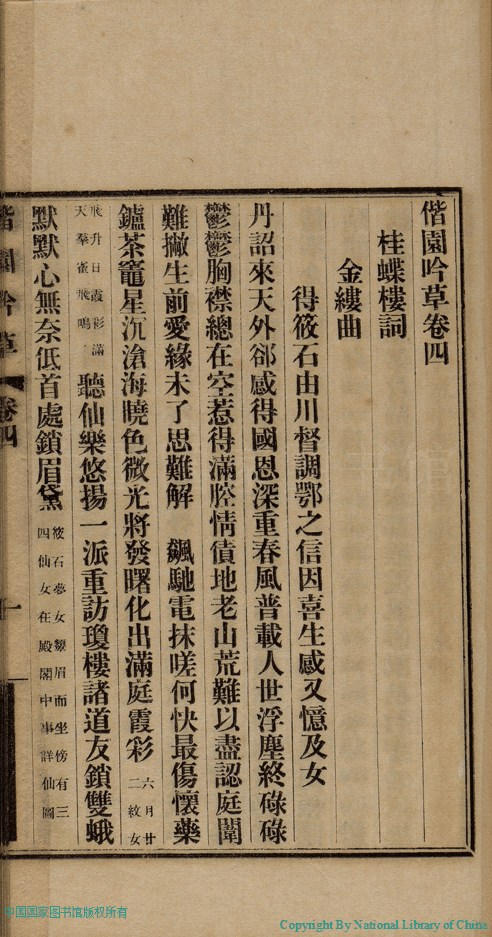 偕園吟草卷四
桂蝶樓詞
金縷曲
得筱石由川督調鄂之信因喜生感又憶及女
丹詔來天外郤感得國恩深重春風普載人世浮塵終碌碌
鬱鬱胸襟總在空惹得滿腔情債地老山荒難以盡認庭闈
難撇生前愛緣未了思難解 飆馳電抹嗟何快最傷懷藥
鑪茶竈星沉滄海曉色微光將發曙化出滿庭霞彩六月廿二紋女
飛升日霞彩滿天羣雀飛鳴 聽仙樂悠揚一派重訪瓊樓諸道友鎖雙蛾
默默心無奈低首處鎖眉黛筱石夢女顰眉而坐傍有三四仙女在殿閣中事詳仙圖
偕園吟草 卷四 一
中国国家图书馆版权所有
Copyright By National Library of China